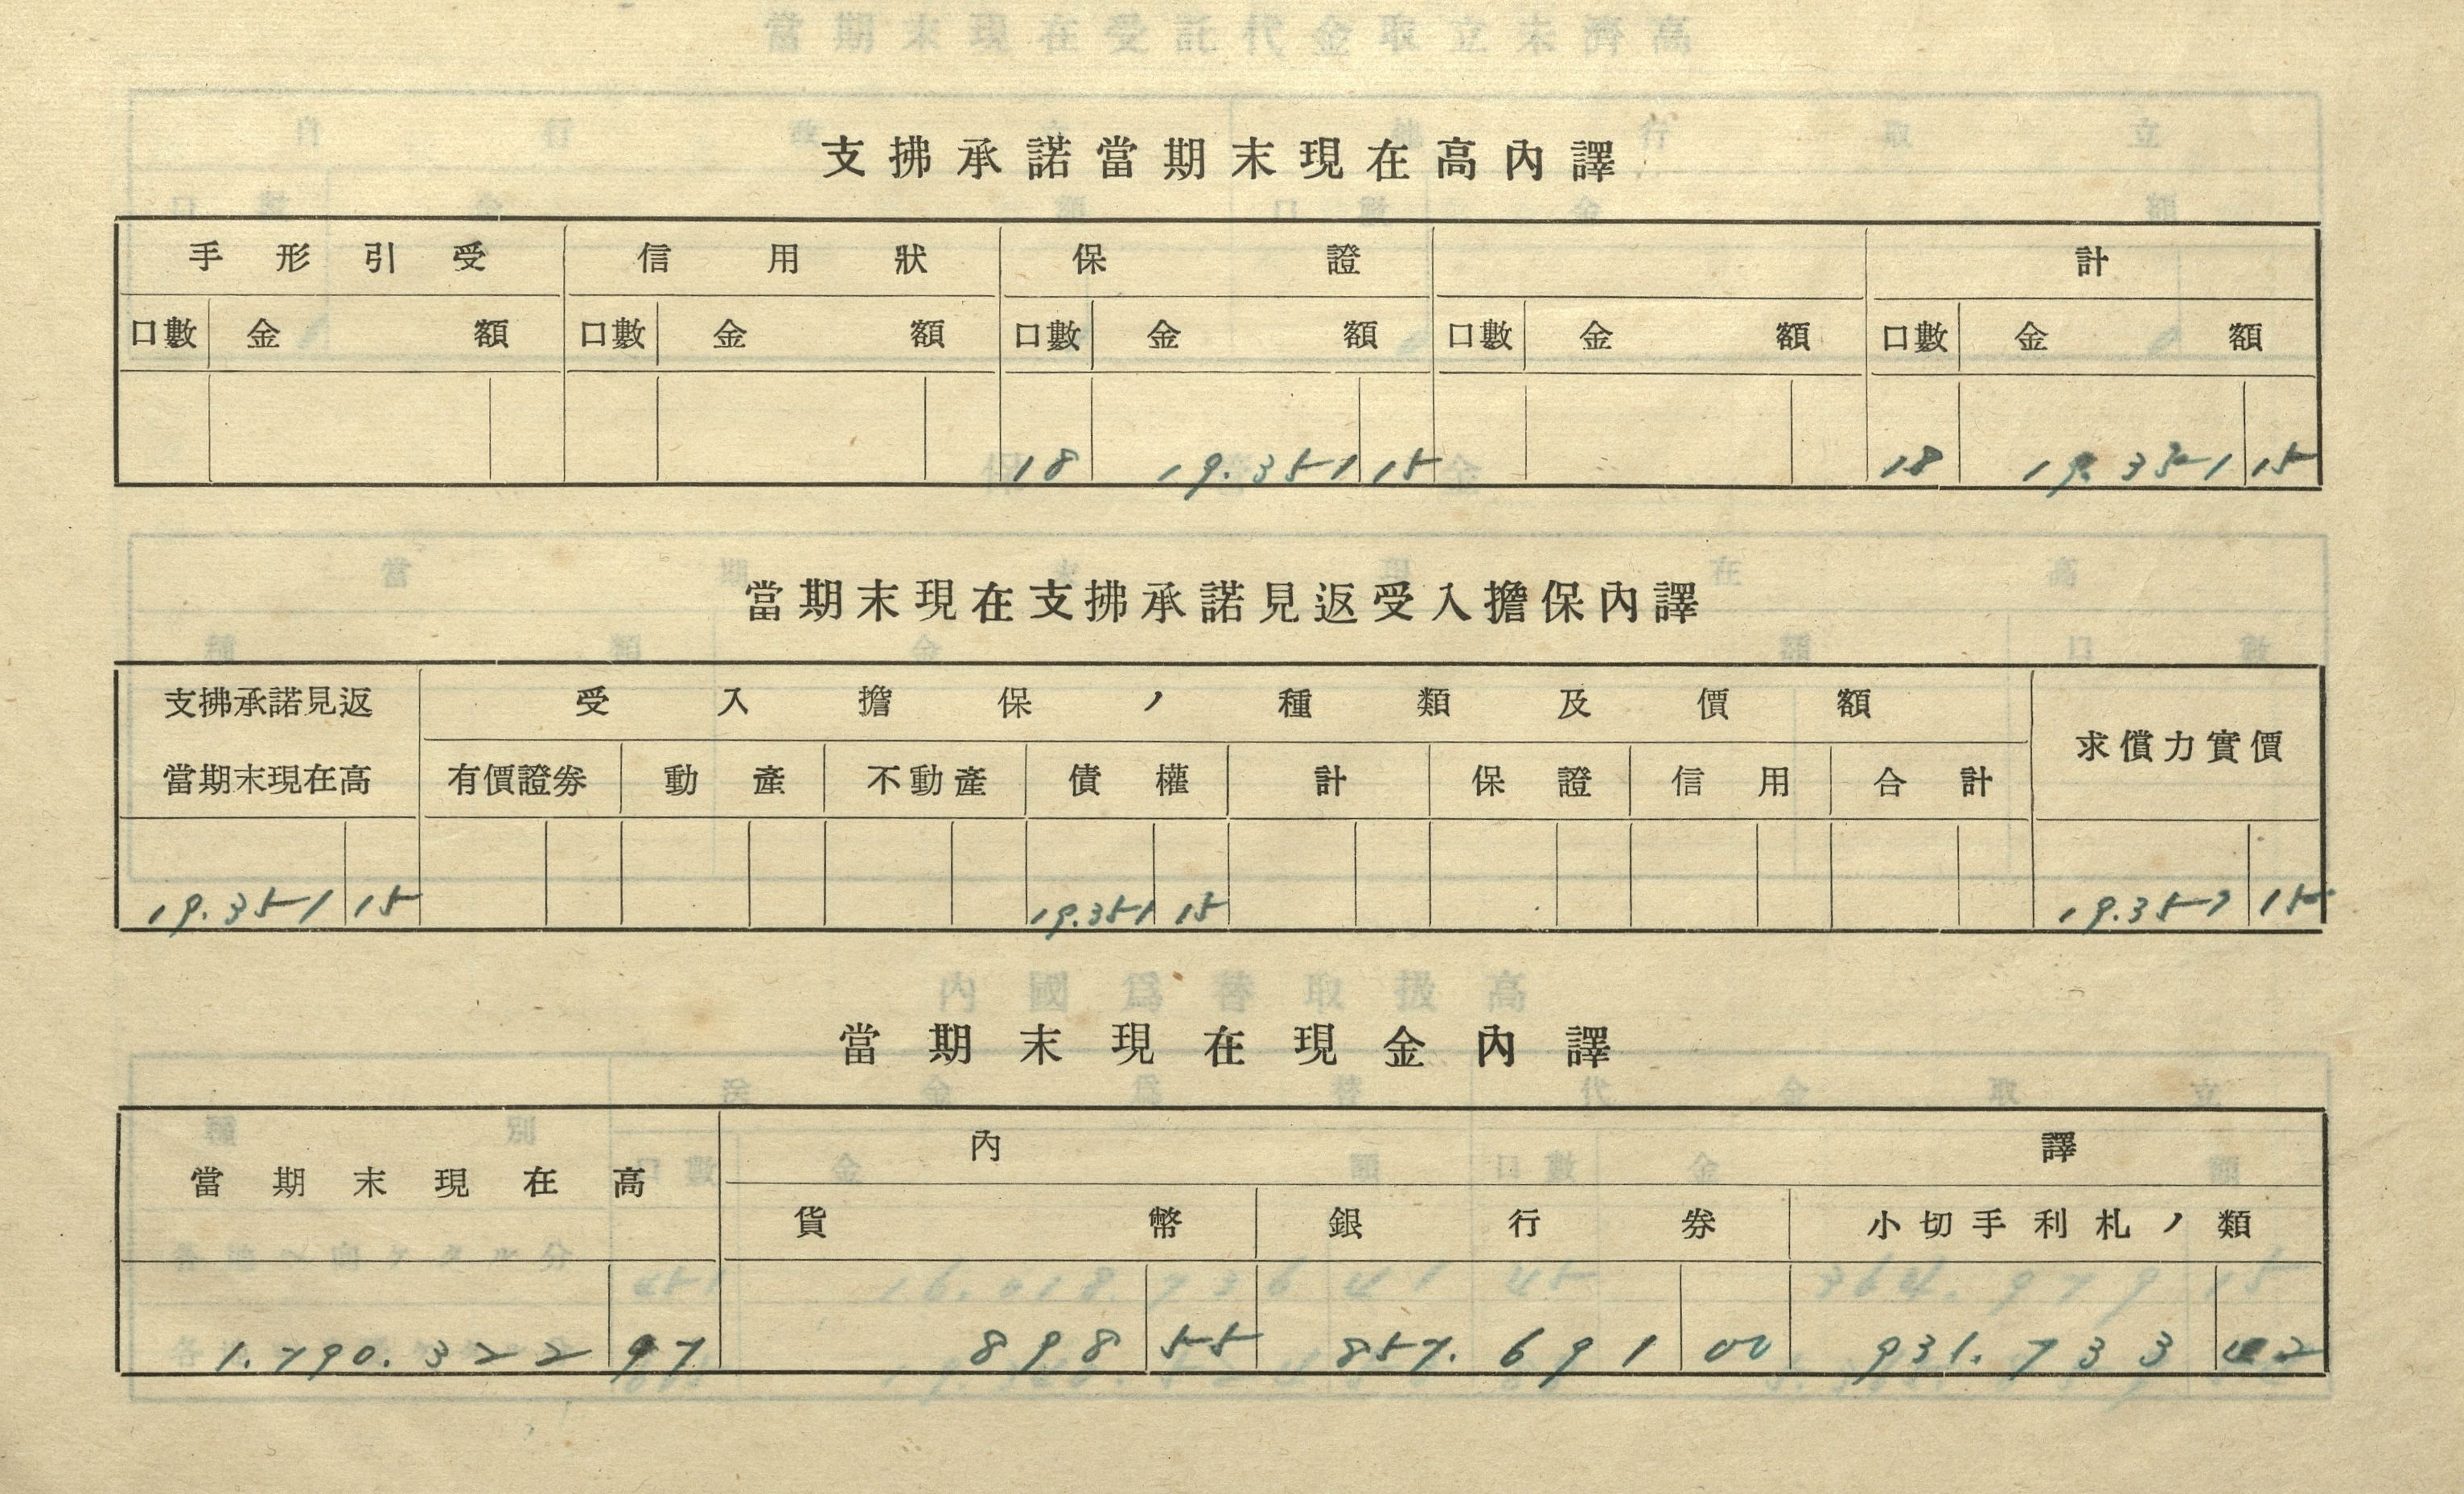 支拂承諾當期末現在高內譯
手形引受 信用狀 保證 計
口數 金額 口數 金額 口數 金額 口數 金額 口數 金額
18 19.351 15 18 19.351 15
當期末現在支拂承諾見返受入擔保內譯
支拂承諾見返 受入擔保ノ種類及價額 求償力實價
當期末現在高 有價證券 動產 不動產 債權 計 保證 信用 合計
19.351 15 19.351 15 19.351 15
當期末現在現金內譯
當期末現在高 內譯
貨幣 銀行券 小切手利札ノ類
1.790.322 97 898 55 857.691 00 931.733 42